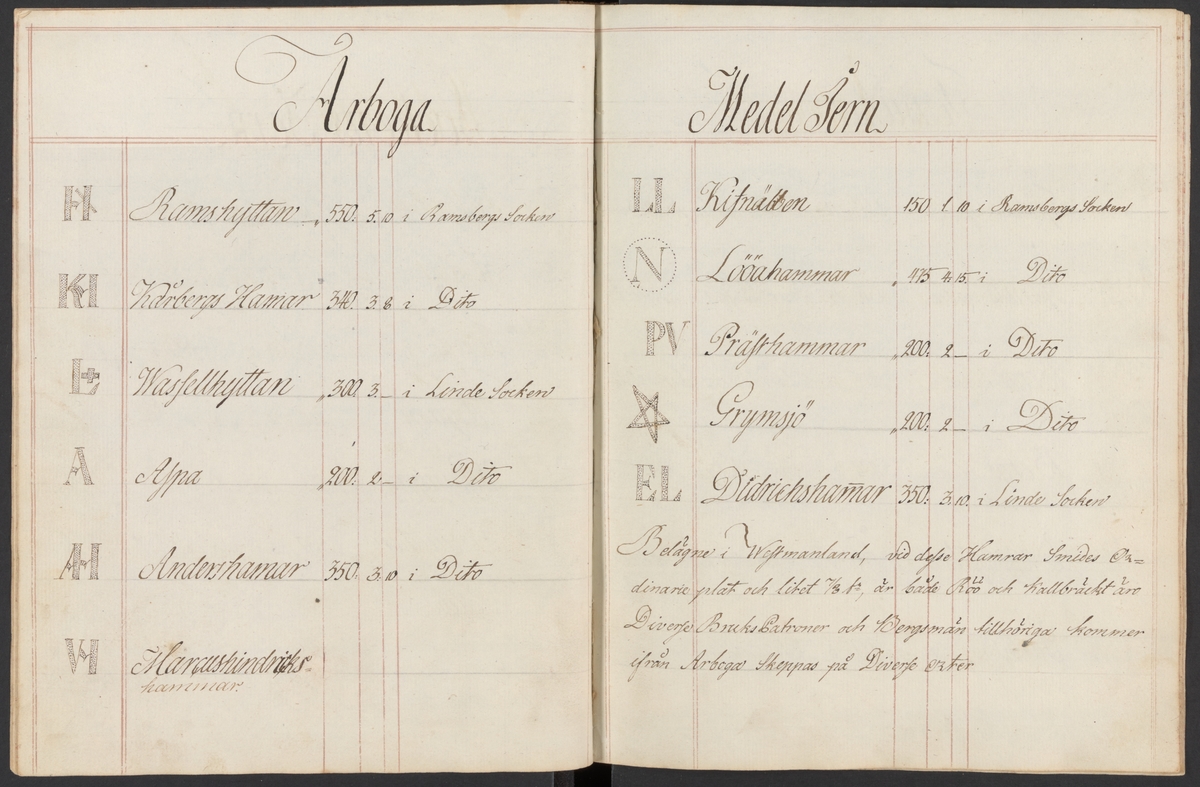 Arboga
H Ramshyttan 550. 5. 10 i Ramsbergs Socken
KH Kårbergs Hamar 340. 3. 8 i Dito
L Wasselhyttan 300. 3. — i Linde Socken
A Aspa 200. 2. — i Dito
AH Andershamar 350. 3. 10 i Dito
VH Marcushindrichs-
hammar.
Medel Jern
LL Kifnätten 150 1 10 i Ramsbergs Socken
N Lööahammar 475 4. 15. i Dito
PV Prästhammar 200. 2 — i Dito
Grymsjö 200. 2 — i Dito
EL Didrichsham̄ar 350. 3. 10. i Linde Socken
Belägne i Westmanland, vid desse Hamrar Smides Or=
dinarie plat och litet 7/8 t, är både Röö och Kallbräckt äro
Diverse BruksPatroner och Bergsmän tillhöriga kommer
ifrån Arboga Skeppas på Diverse orter